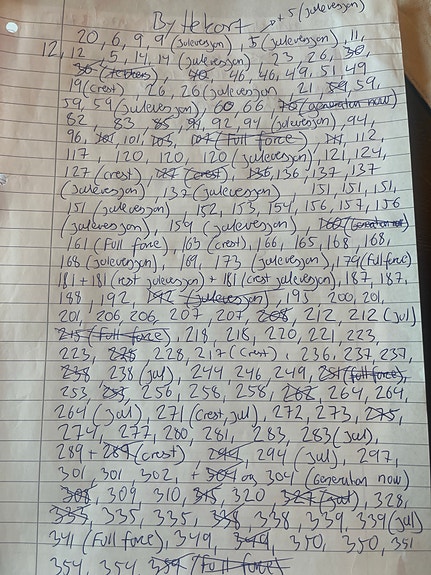 + 5 (juleversjon)
By Hekort
20, 6, 9, 9 (juleversjon), 5 (juleversjon), 11,
12, 12, 5, 14, 14 (juleversjon), 23, 26, 30,
36, 40, 46, 46, 49, 51, 49
19 (crest), 26, 26 (juleversjon), 21, 59, 59,
59, 59 (juleversjon), 60, 66, 70 (generation now)
82, 83, 85, 91, 92, 94 (juleversjon), 94,
96, 101, 101, 103, 107 (full force), 111, 112
117, 120, 120, 120 (juleversjon), 121, 124,
127 (crest), 127 (crest), 136, 136, 137, 137
(juleversjon), 137 (juleversjon) 151, 151, 151,
151 (juleversjon), 152, 153, 154, 156, 157, 156
(juleversjon), 159 (juleversjon), 160 (Generation now)
161 (Full force), 163 (crest), 166, 165, 168, 168,
168 (juleversjon), 169, 173 (juleversjon), 179 (Full force)
181 + 181 (crest juleversjon) + 181 (crest juleversjon), 187, 187,
188, 192, 192 (juleversjon), 195, 200, 201,
201, 206, 206, 207, 207, 208, 212, 212 (jul)
215 (Full force), 218, 218, 220, 221, 223,
223, 228, 228, 217 (crest), 236, 237, 237,
238, 238 (jul), 244, 246, 249, 251 (full force),
253, 253, 256, 258, 258, 262, 264, 264,
264 (jul), 271 (crest, jul), 272, 273, 275,
274, 277, 280, 281, 283, 283 (jul),
289 + 289 (crest), 294, 294 (jul), 297,
301, 301, 302, + 304 og 304 (Generation now)
308, 309, 310, 315, 320, 327 (jul), 328,
333, 335, 335, 338, 338, 339, 339 (jul)
341 (Full force), 349, 349, 350, 350, 351
354, 354, 359 (Full force)